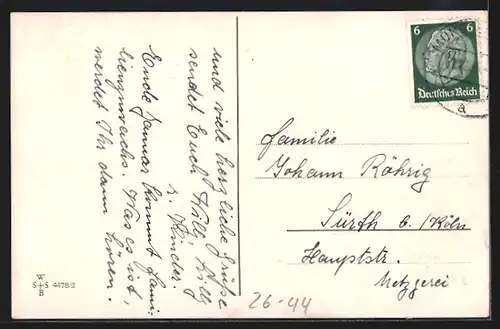 und viele herzliche Grüße
sendet Euch Willi, Lilly
u. Kinder.
Ende Januar kommt Fami-
lienzuwachs. Was es ist,
werdet Ihr dann hören.
W
S+S 4478/2
B
6 6
Deutsches Reich
a
Familie
Johann Röhrig
Sürth b./Köln
Hauptstr.
Metzgerei
26-44